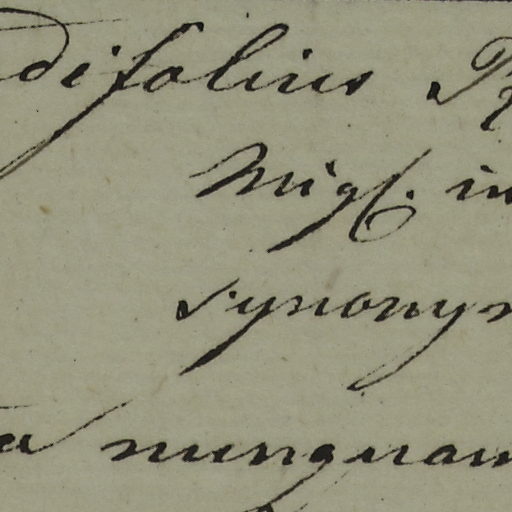 difolius P
Migl. in
synonym
a nunquam